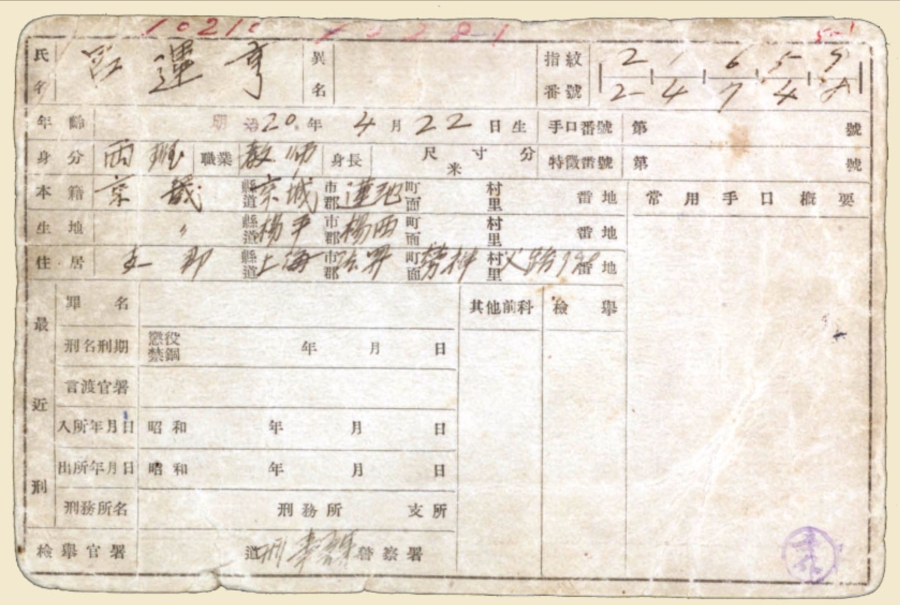 10210
氏名 呂運亨 異名 指紋番號 2 1 6 5 9
2 4 7 4 8
年齡 明治20年4月22日生 手口番號 第 號
身分 両班 職業 教師 身長 尺寸分 米 特徵番號 第 號
本籍 京畿 縣道 京城 市郡 蓮池 町面 村里 番地 常用手口槪要
生地 〃 縣道 楊平 市郡 楊西 町面 村里 番地
住居 支那 縣道 上海 市郡 法界 町面 村里 父路 番地
最近刑 罪名 其他前科 檢擧
刑名刑期 懲役 禁錮 年 月 日
言渡官署
入所年月日 昭和 年 月 日
出所年月日 昭和 年 月 日
刑務所名 刑務所 支所
檢擧官署 道 警察署